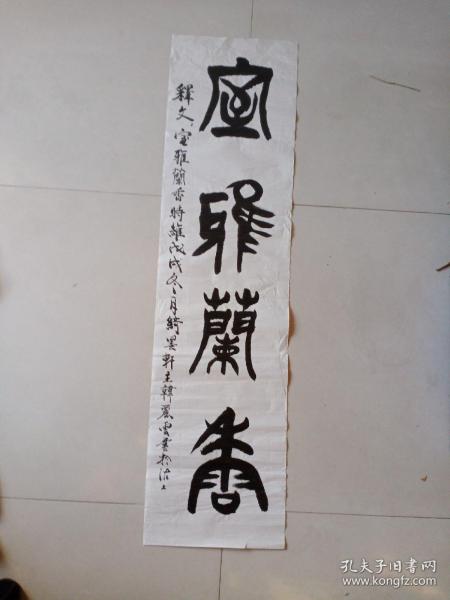 室雅蘭香
釋文：室雅蘭香時維戊戌冬月綺墨軒主韓麗雲書於沽上
孔夫子旧书网
www.kongfz.com